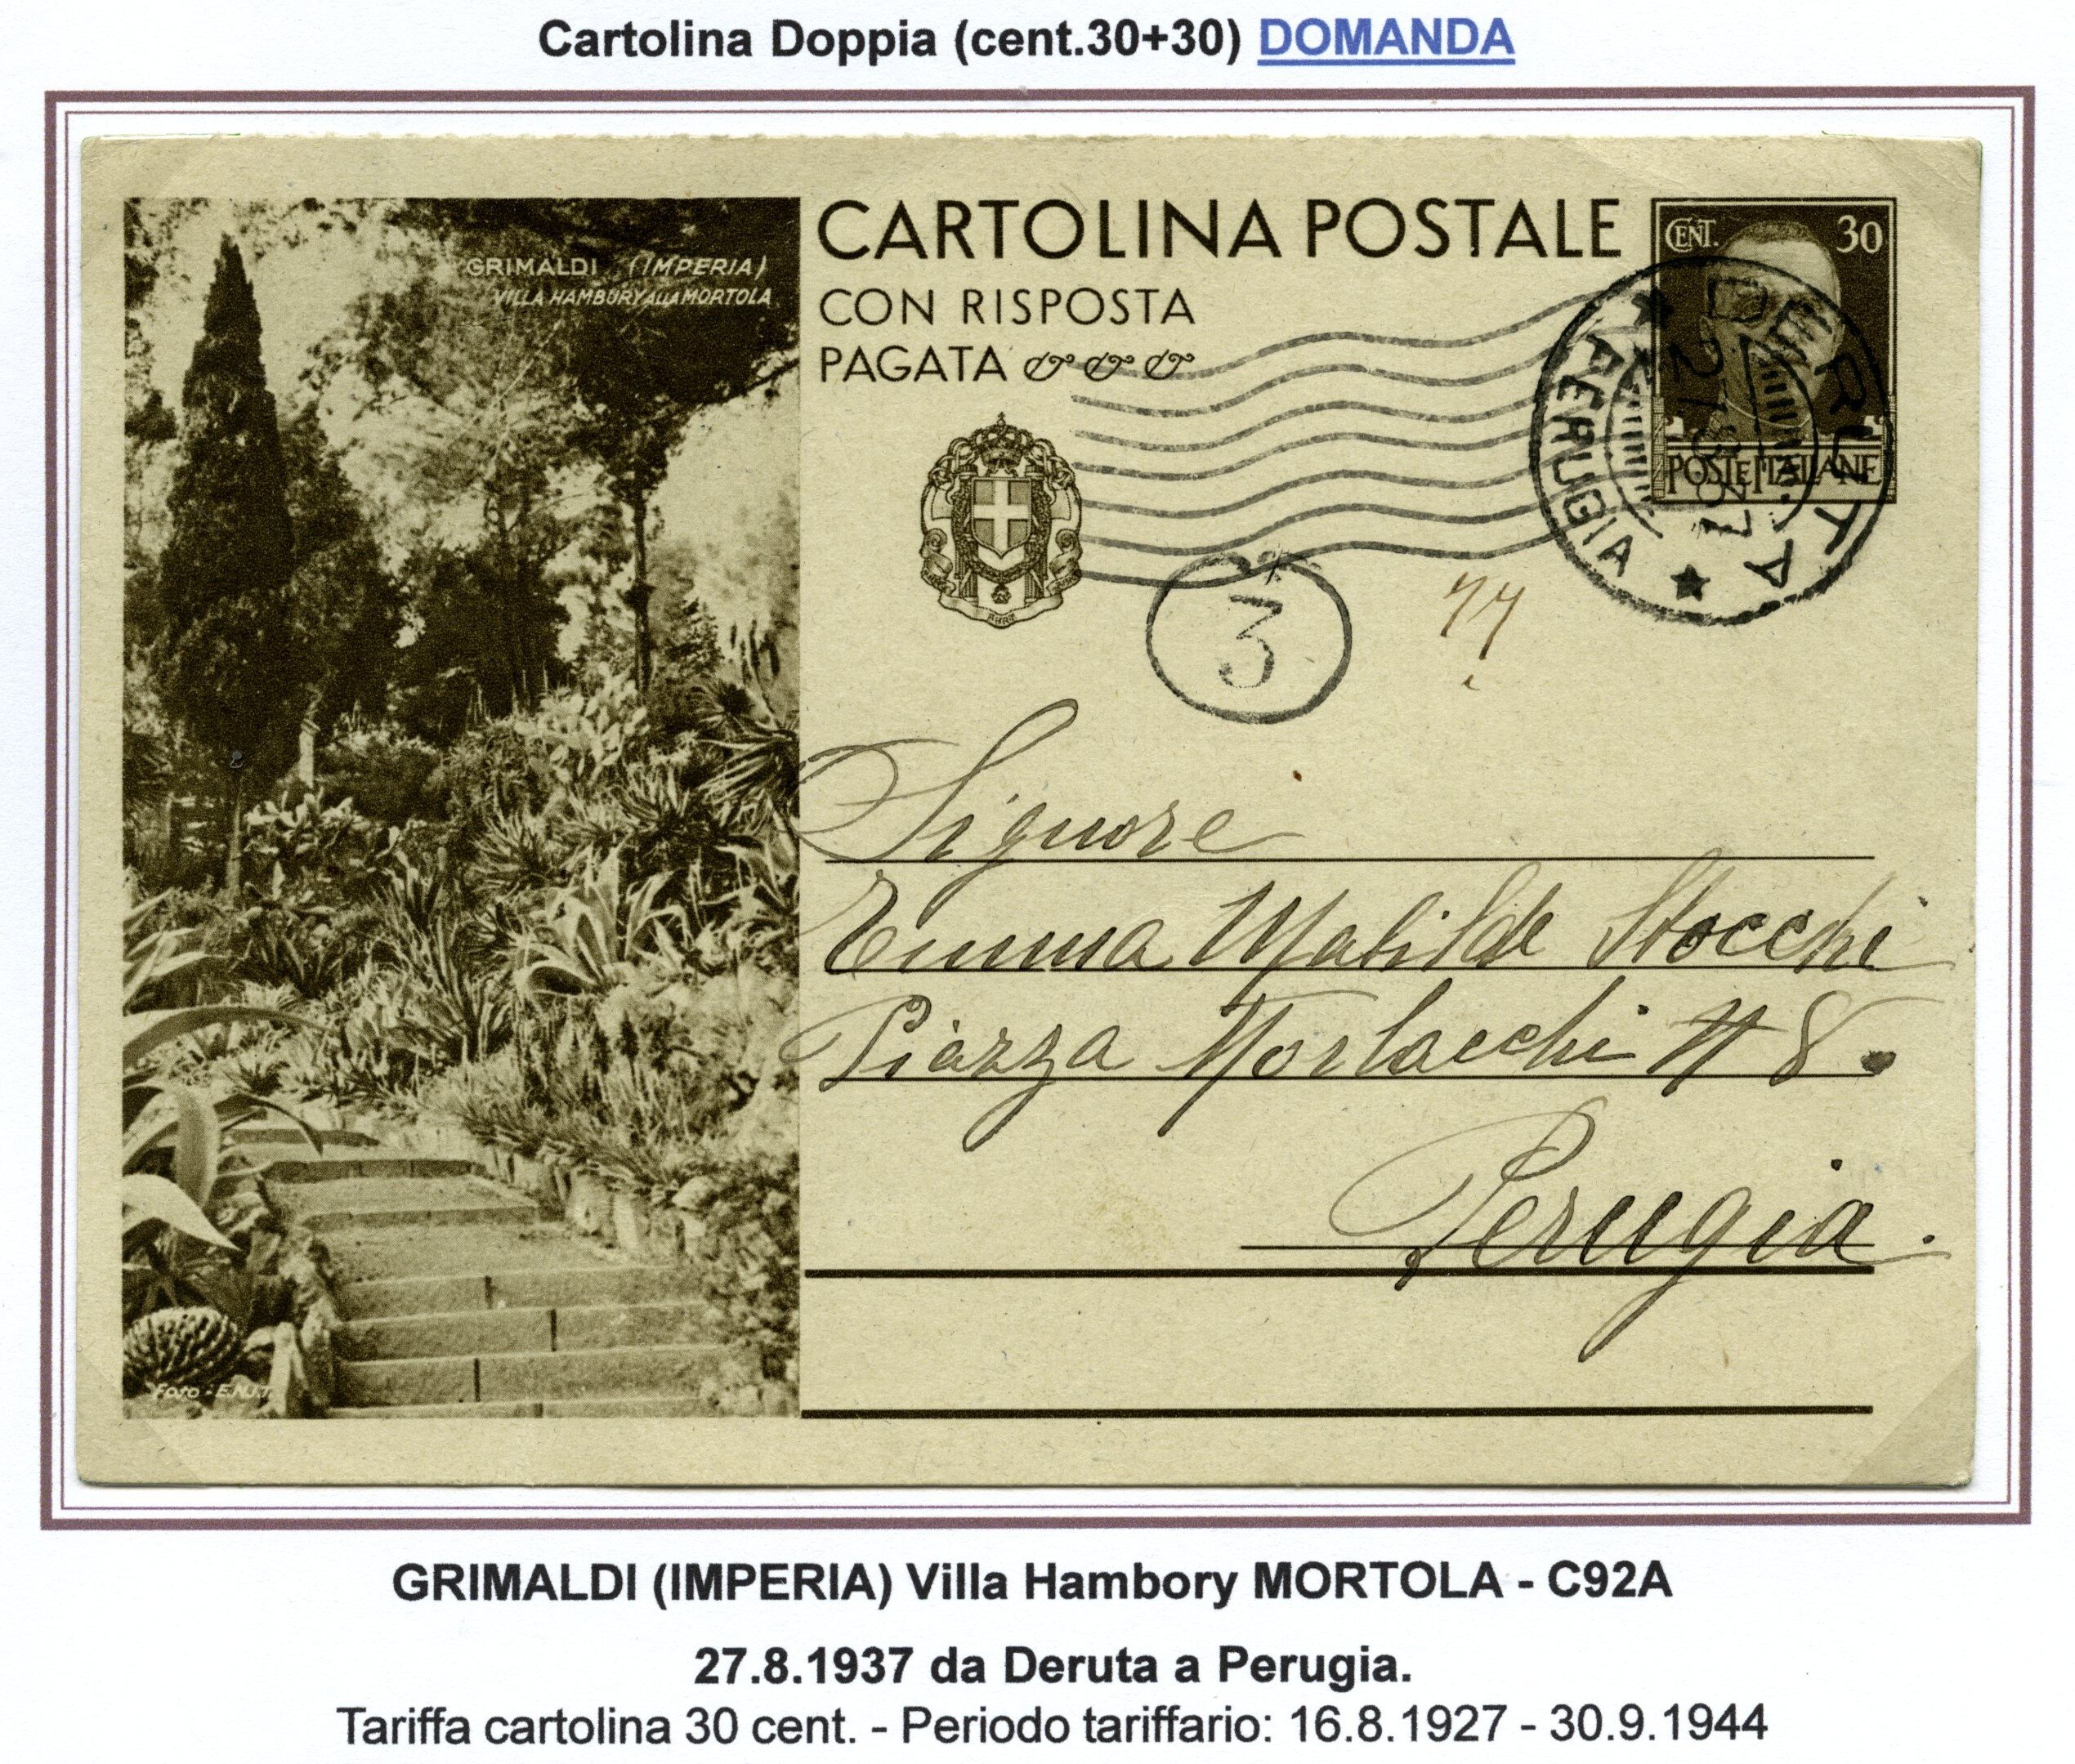 Cartolina Doppia (cent.30+30) DOMANDA
GRIMALDI (IMPERIA)
VILLA HAMBURY ALLA MORTOLA
Foto - E.N.I.T.
CARTOLINA POSTALE
CON RISPOSTA
PAGATA
CENT. 30
POSTE ITALIANE
DERUTA
PERUGIA
3
Signore
Emma Matilde Stocchi
Piazza Morlacchi N 8.
Perugia.
GRIMALDI (IMPERIA) Villa Hambory MORTOLA - C92A
27.8.1937 da Deruta a Perugia.
Tariffa cartolina 30 cent. - Periodo tariffario: 16.8.1927 - 30.9.1944